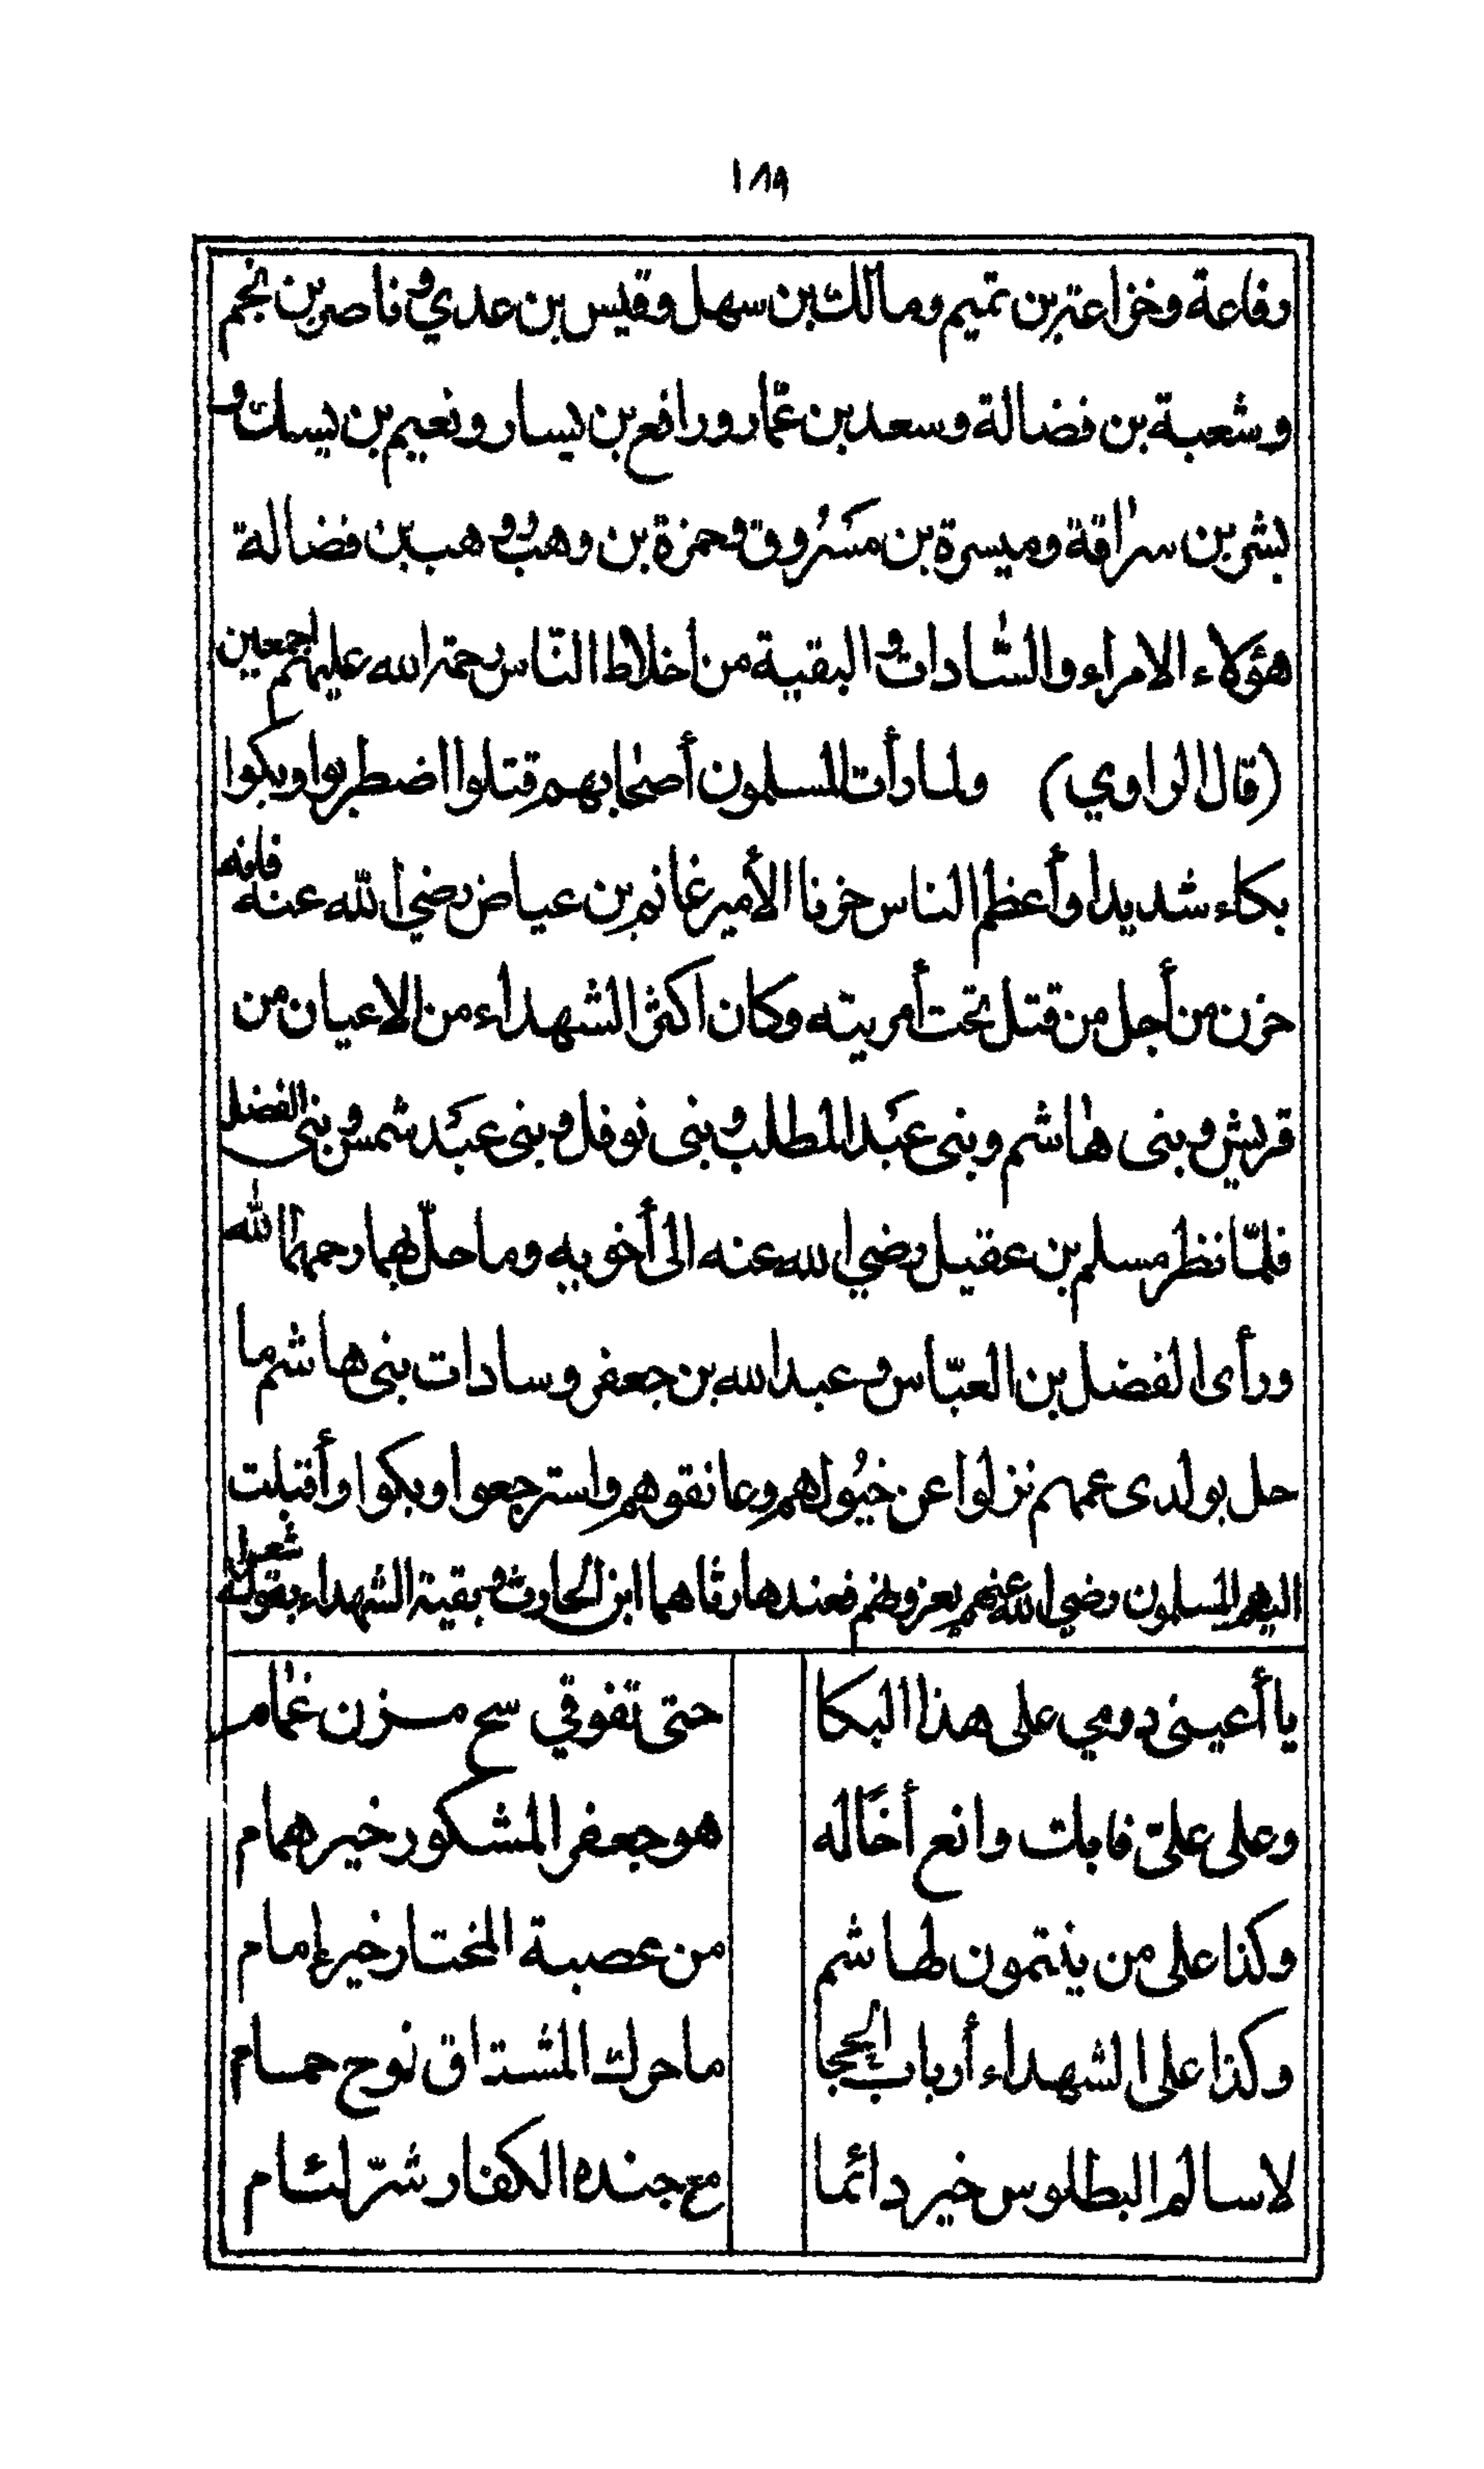 ١٨٩
رفاعة وخزاعة بن تميم ومالك بن سهل وقيس بن عدي وناصر بن نجم
وشعبة بن فضالة وسعد بن عمّار ورافع بن يسار ونعيم بن يسك و
بشر بن سراقة وميسرة بن مَسْرُوق وحمزة بن وهب ووهب بن فضالة
هؤلاء الامراء والسّادات والبقية من اخلاط النّاس رحمة الله عليهم اجمعين
(قال الراوي) ولما رأت المسلمون أصحابهم قتلوا اضطربوا وبكوا
بكاء شديدا وأعظم الناس حزنا الأمير غانم بن عياض رضي الله عنه فانه
حزن من أجل من قتل تحت أمريته وكان اكثر الشهداء من الاعيان من
قريش وبنى هاشم وبنى عَبْد المطلب وبنى نوفل وبنى عبْد شمس وبنى الفضل
فلمّا نظر مسلم بن عقيل رضي الله عنه الى أخويه وما حلّ بهما رحمهما الله
ورأى الفضل بن العبّاس وعبد الله بن جعفر وسادات بنى هاشم ما
حل بولدى عمهم نزلوا عن خيُولهم وعانقوهم واسترجعوا وبكوا وأقبلت
اليهم المسلمون رضي الله عنهم يعزونهم فعندها رثاهما ابن الحارث وبقية الشهداء بقوله شعرا
يا أعينى دومي على هذا البكا حتى تفوقي سح مزن غمام
وعلى عليّ فابك وانع أخَاله هو جعفر المشكور خير همام
وكذا على من ينتمون لهاشم من عصبة المختار خير إمام
وكذا على الشهداء أرباب الحجا ما حرك المشتاق نوح حمام
لا سالم البطلوس خير دائما مع جنده الكفار شرّ لئام